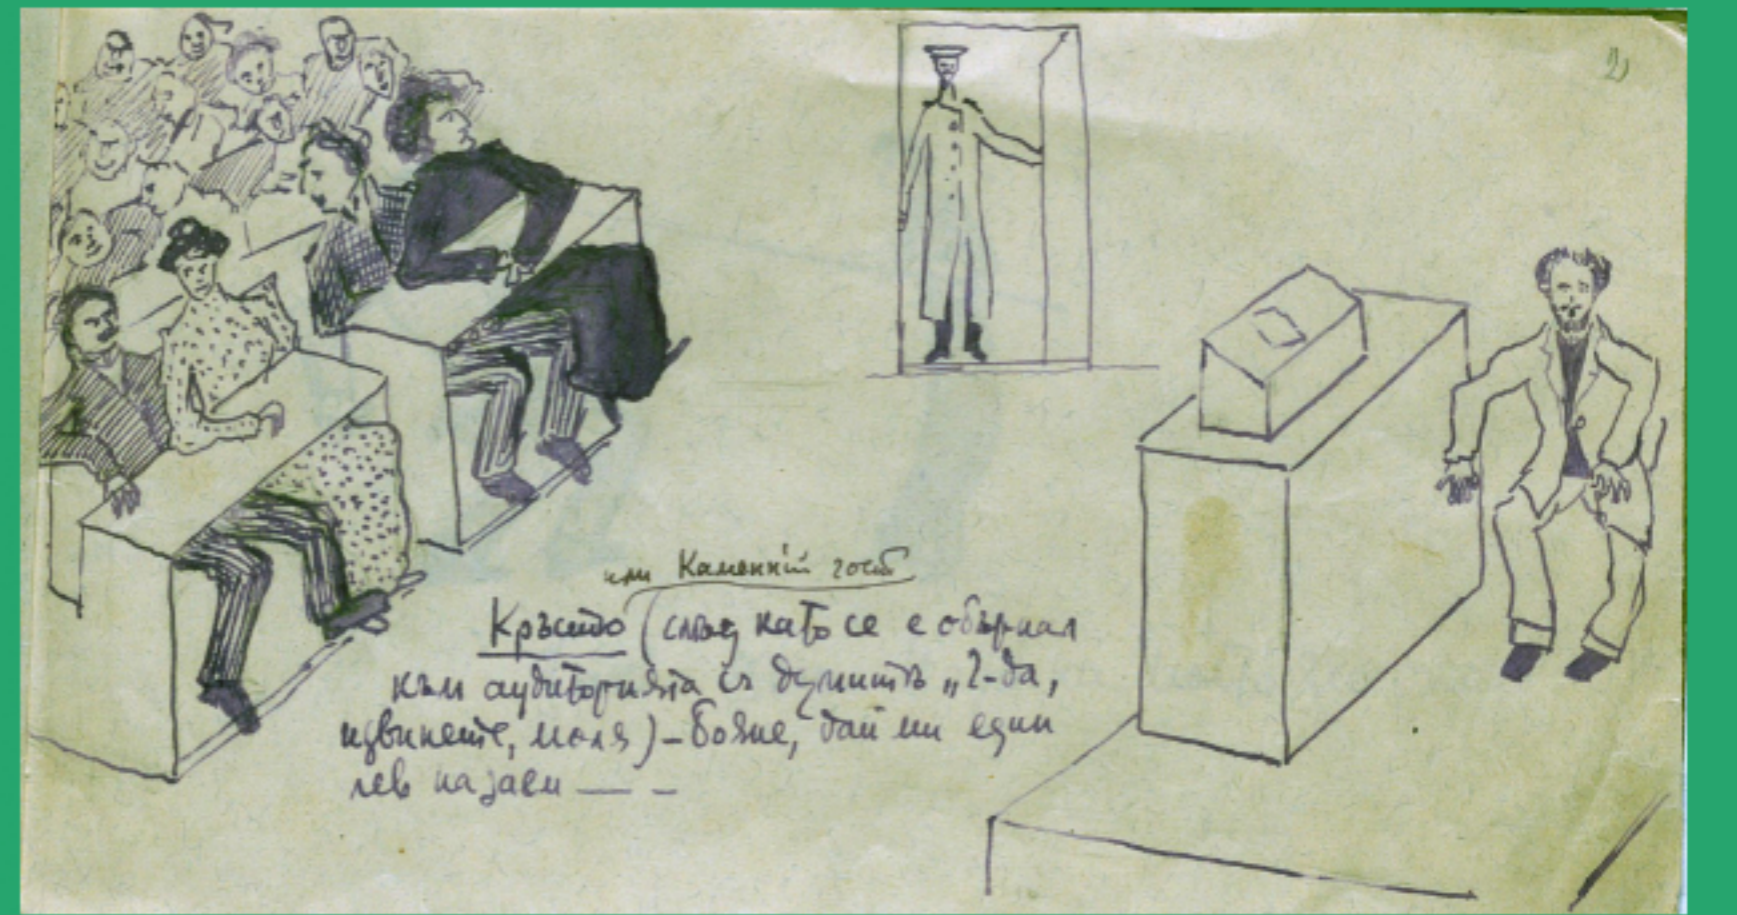 2)
или Каменній гость
Кръстю (слѣд като се е обърнал
към аудиторията съ думитѣ „Г-да,
извинете, моля) – Бояне, дай ми един
лев на заем — — –